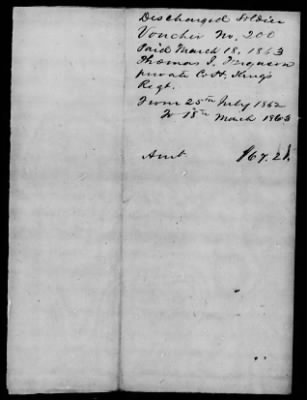 Discharged Soldier
Voucher No. 200
Paid March 18, 1863
Thomas J. Ferguson
private Co H, King's
Regt.
From 25th July 1862
To 18th March 1863
Amt $67.21